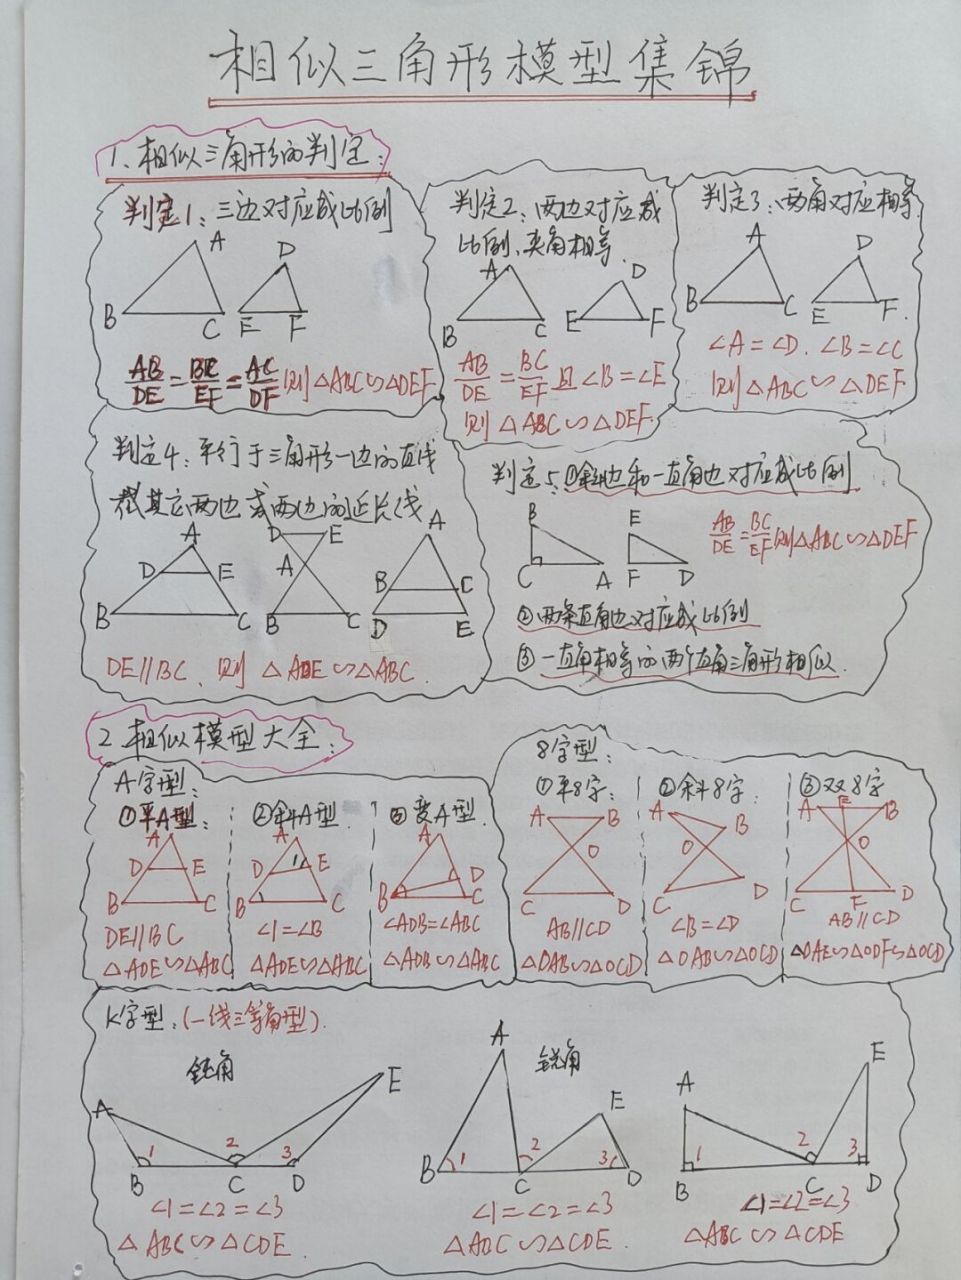 相似三角形模型集锦
1、相似三角形的判定:
判定1：三边对应成比例
A
D
B
C
E
F
AB/DE=BC/EF=AC/DF则△ABC∽△DEF
判定2：两边对应成
比例,夹角相等.
A
D
B
C
E
F
AB/DE=BC/EF且∠B=∠E
则△ABC∽△DEF
判定3：两角对应相等
A
D
B
C
E
F
∠A=∠D.∠B=∠C
则△ABC∽△DEF
判定4：平行于三角形一边的直线
截其它两边或两边的延长线
A
D
E
B
C
D
E
A
B
C
A
B
C
D
E
DE∥BC、则 △ADE∽△ABC.
判定5、①斜边和一直角边对应成比例
B
C
A
E
F
D
AB/DE=BC/EF则△ABC∽△DEF
②两条直角边对应成比例
③一直角相等的两个直角三角形相似.
2.相似模型大全:
A字型:
①平A型:
A
D
E
B
C
DE∥BC
△ADE∽△ABC
②斜A型
A
D
1
E
B
C
∠1=∠B
△ADE∽△ABC
③变A型
A
D
B
C
∠ADB=∠ABC
△ADB∽△ABC
8字型:
①平8字:
A
B
O
C
D
AB∥CD
△OAB∽△OCD
②斜8字.
A
B
O
C
D
∠B=∠D
△OAB∽△OCD
③双8字
A
E
B
O
C
F
D
AB∥CD
△OAE∽△ODF∽△OCD
K字型:(一线三等角型).
钝角
A
E
1
2
3
B
C
D
∠1=∠2=∠3
△ABC∽△CDE
锐角
A
E
1
2
3
B
C
D
∠1=∠2=∠3
△ABC∽△CDE.
A
E
1
2
3
B
C
D
∠1=∠2=∠3
△ABC∽△CDE